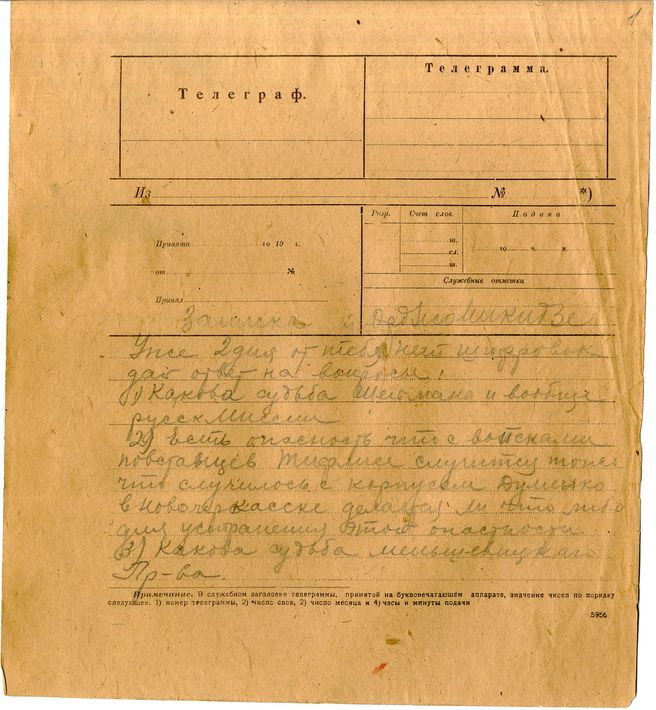 1
Телеграф.
Телеграмма.
Из № *)
Разр. Счет слов. Подана
Принята го 19 г.
ш.
сл.
го ч. м.
от №
ш.
Служебные отметки
Принял
Записка с Орджоникидзе
Уже 2 дня от тебя нет шифровок
дай ответ на вопросы:
1) Какова судьба Шейтмана и вообще
русск миссии
2) Есть опасность что с войсками
повстанцев Тифлисе случится тоже
что случилось с корпусом Думенко
в Новочеркасске делается ли что либо
для устранения этой опастности
(3) Какова судьба меньшевицкаго
Пр-ва.
Примечание. В служебном заголовке телеграммы, принятой на буквопечатающем аппарате, значение чисел по порядку
следующее: 1) номер телеграммы, 2) число слов, 2) число месяца и 4) часы и минуты подачи
5956